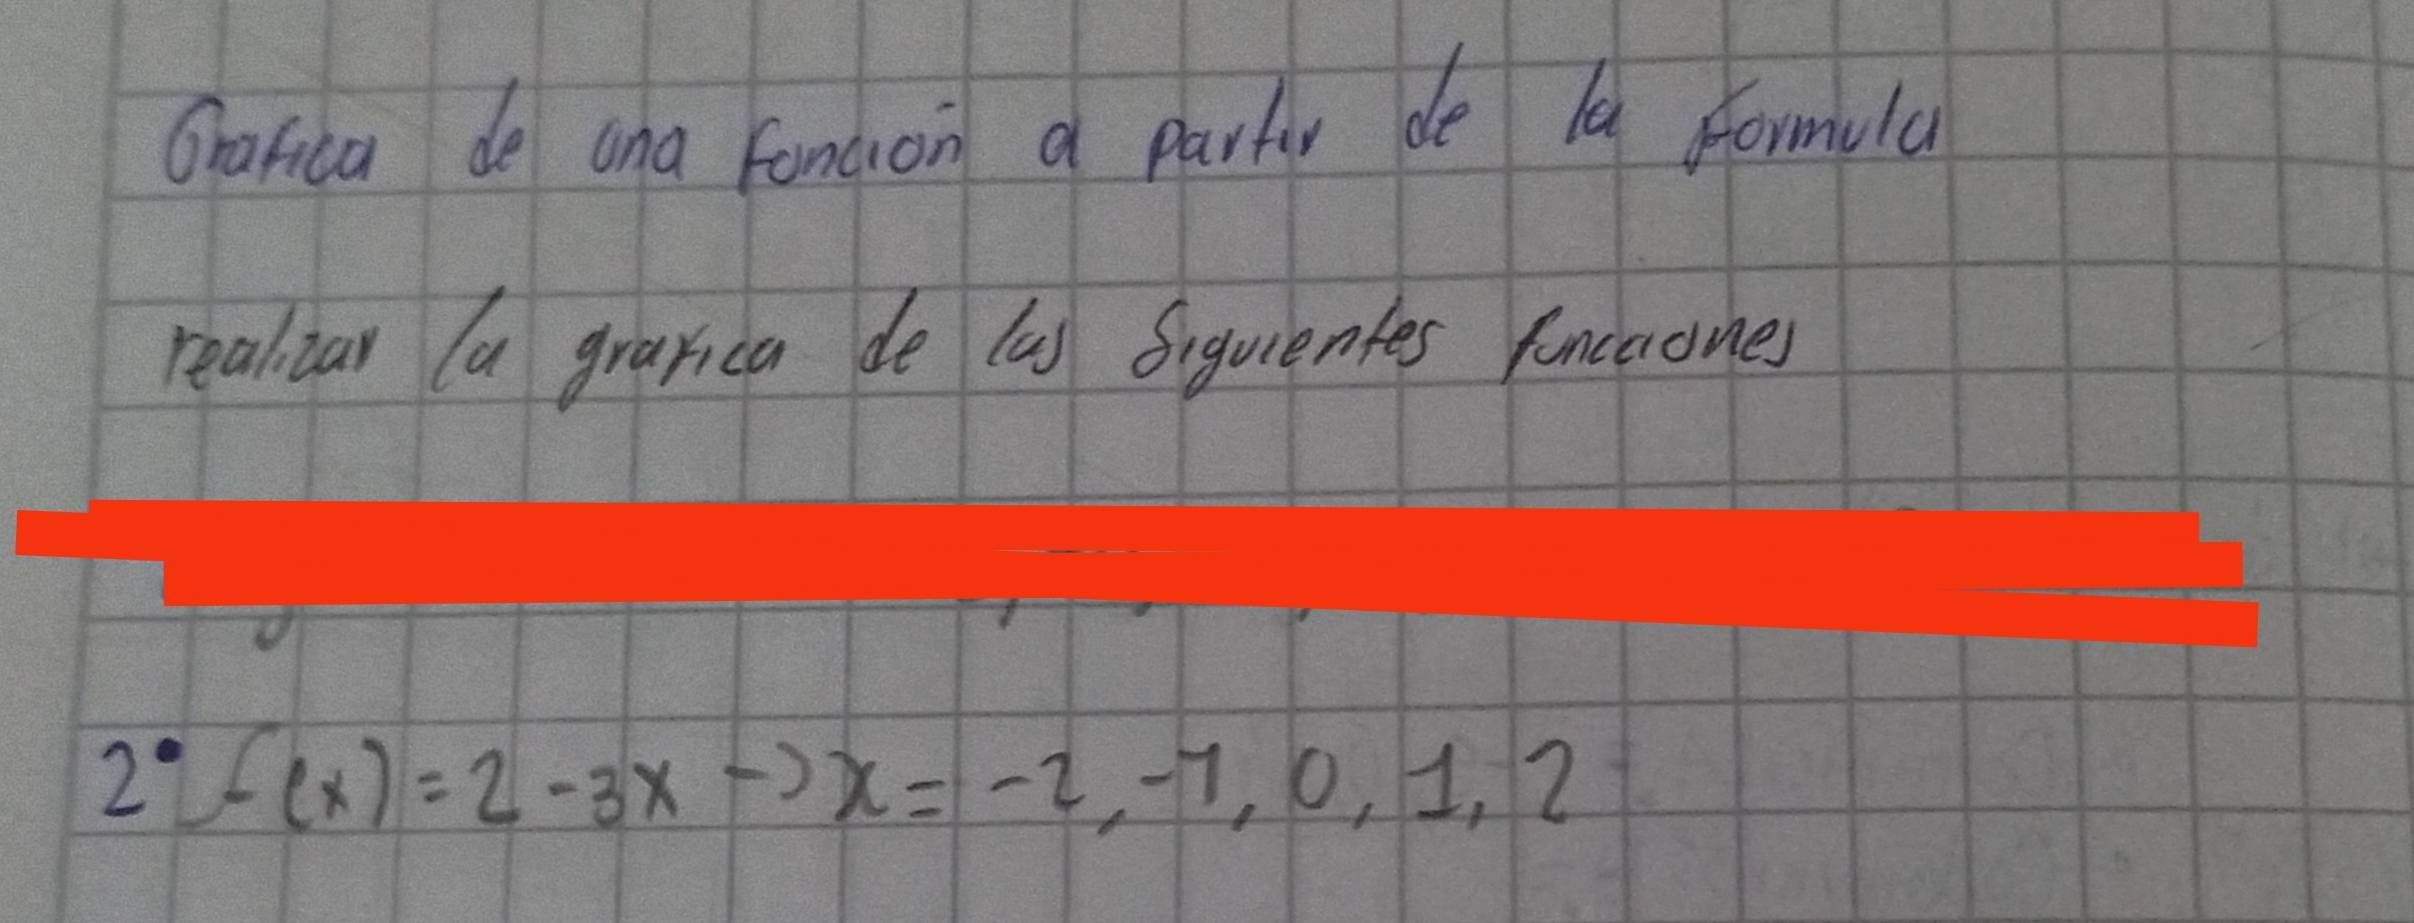 Grafica de una función a partir de la Formula
realizar la grafica de las Siguientes funciones
2• f(x) = 2 - 3x -> x = -2, -1, 0, 1, 2